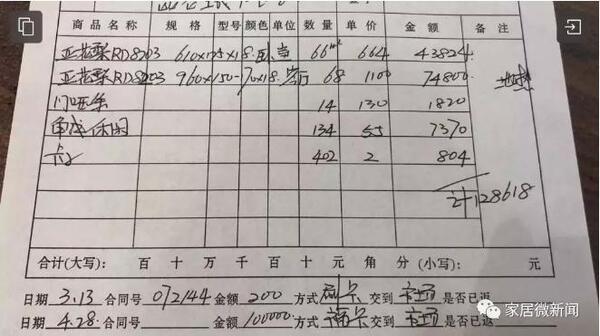 商品名称 规格 型号 颜色 单位 数量 单价 金额 备注
亚花梨RD8203 610x125x18 卧室 66m² 664 43824
亚花梨RD8203 960x150-70x18 客厅 68 1100 74800 地热
门压条 14 130 1820
134 55 7370
卡 402 2 804
计128618
合计(大写): 百 十 万 千 百 十 元 角 分 (小写): 元
日期 3.13 合同号 072144 金额 200 方式 刷卡 交到 是否已返
日期 4.28 合同号 金额 100000 方式 卡 交到 是否已返
家居微新闻